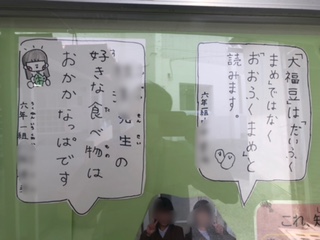 「大福豆」は「だいふく
まめ」ではなく
「おおふくまめ」と
読みます。
六年一組
先生の
好きな食べ物は
おかかなっぱです
六年一組
これ、知